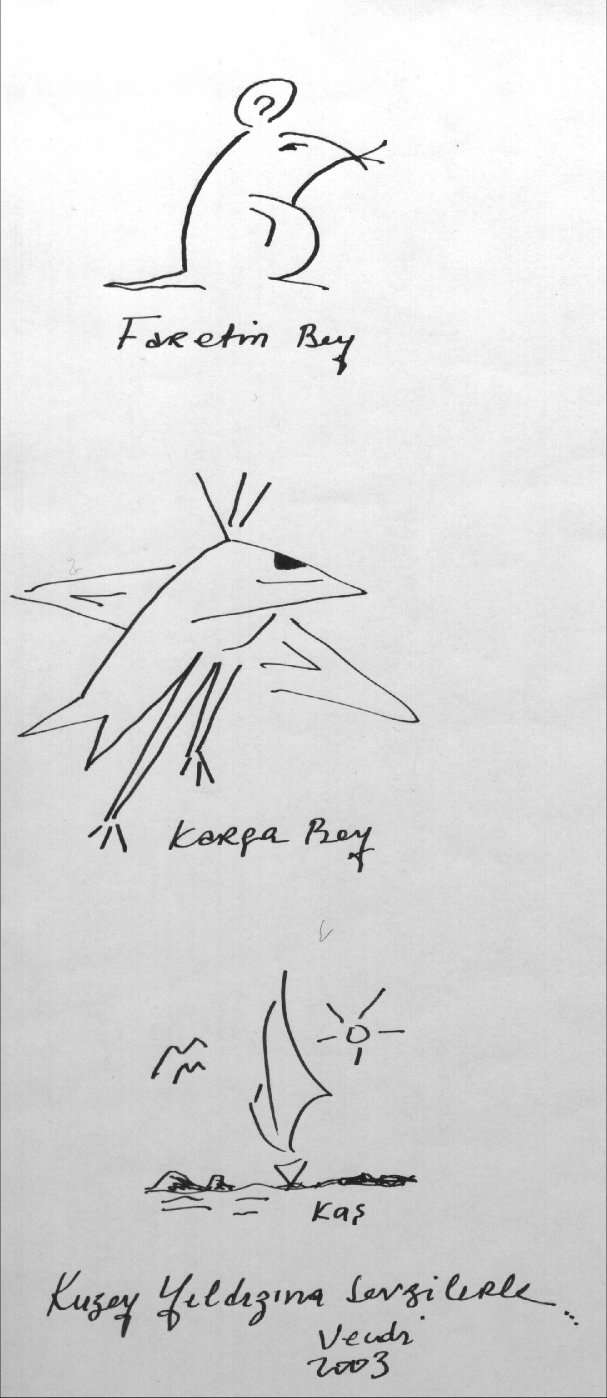 Faretin Bey
Karga Bey
Kaş
Kuzey Yıldızına Sevgilerle...
2003